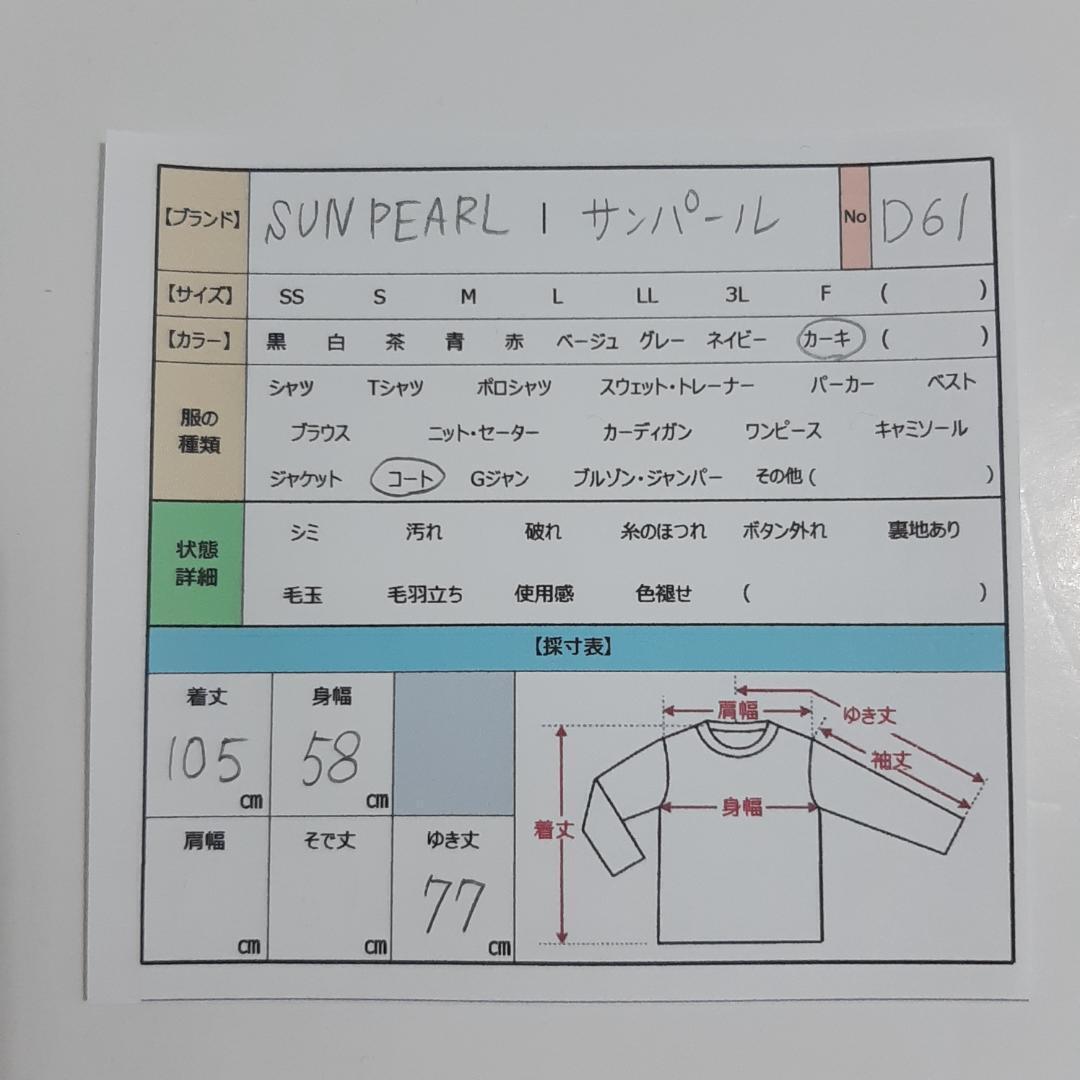 【ブランド】 SUN PEARL | サンパール No D61
【サイズ】 SS S M L LL 3L F ( )
【カラー】 黒 白 茶 青 赤 ベージュ グレー ネイビー カーキ ( )
服の種類
シャツ Tシャツ ポロシャツ スウェット・トレーナー パーカー ベスト
ブラウス ニット・セーター カーディガン ワンピース キャミソール
ジャケット コート Gジャン ブルゾン・ジャンパー その他 ( )
状態詳細
シミ 汚れ 破れ 糸のほつれ ボタン外れ 裏地あり
毛玉 毛羽立ち 使用感 色褪せ ( )
【採寸表】
着丈 身幅
105 cm 58 cm
肩幅 そで丈 ゆき丈
cm cm 77 cm
肩幅 ゆき丈
袖丈
身幅
着丈